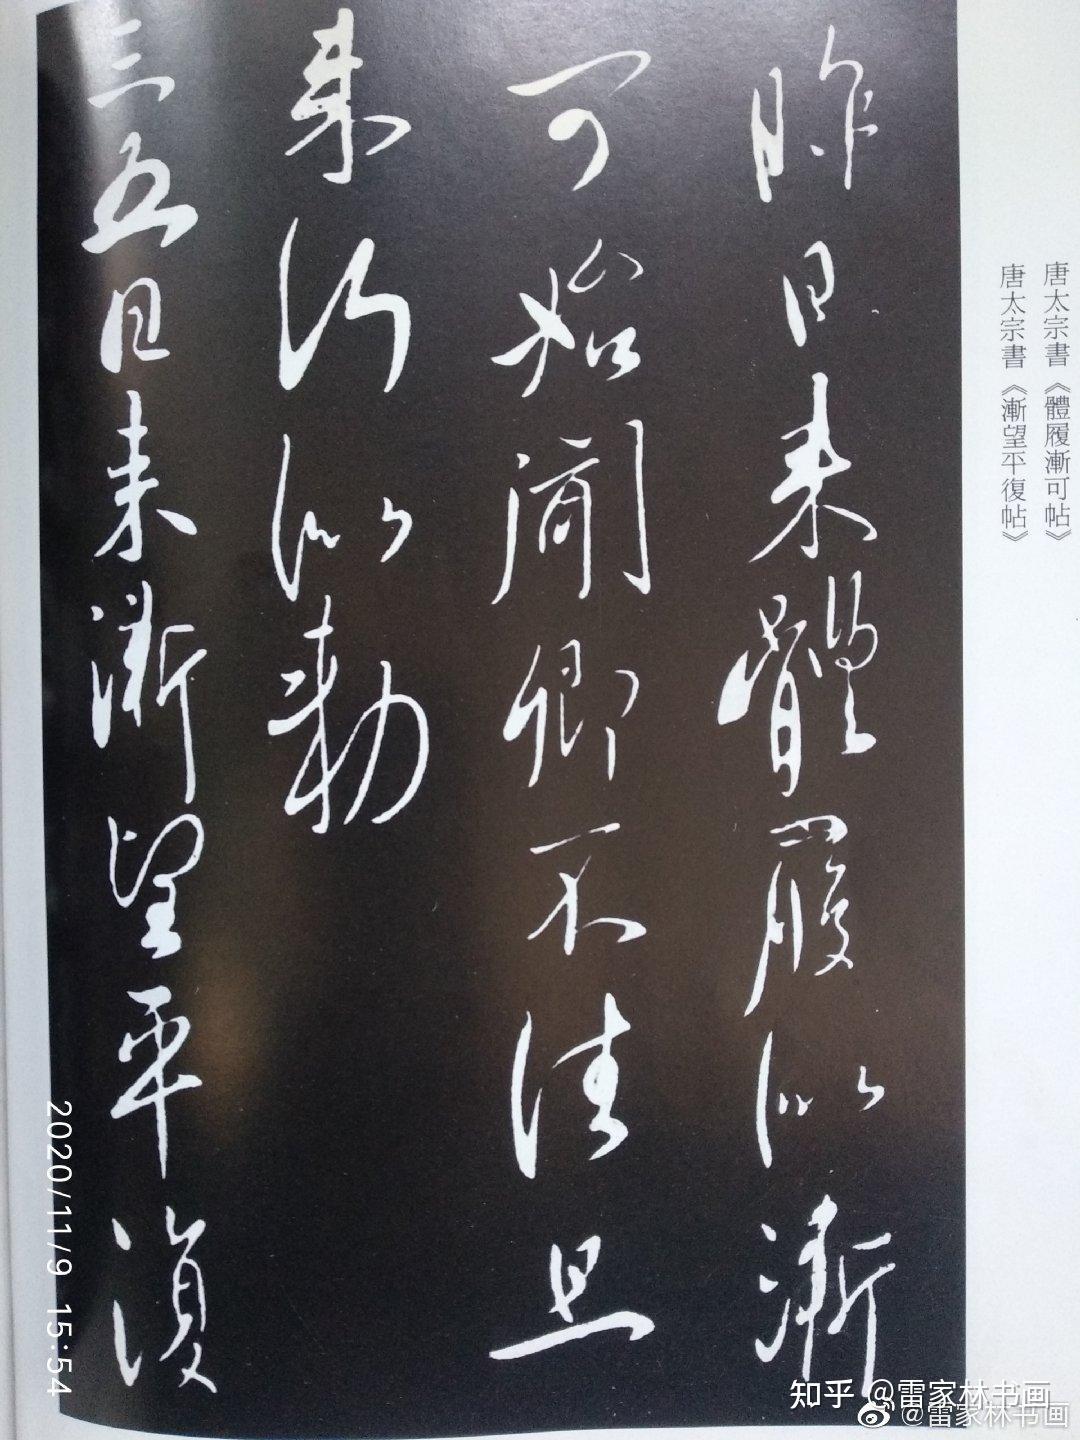 唐太宗書《體履漸可帖》
唐太宗書《漸望平復帖》
昨日來體履似漸
可始聞卿不佳旦
來何似勅
三五日來漸望平復
2020/11/9 15:54
知乎 @雷家林书画
@雷家林书画